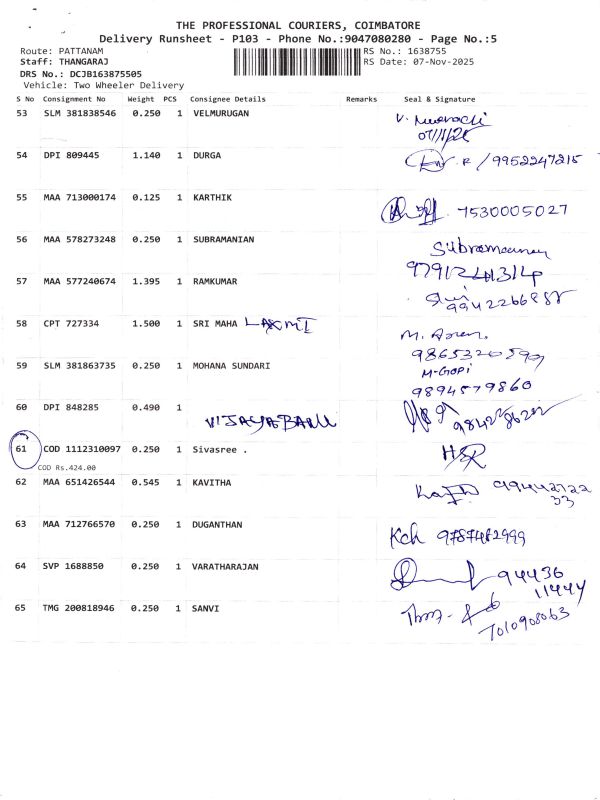 THE PROFESSIONAL COURIERS, COIMBATORE
Delivery Runsheet - P103 - Phone No.:9047080280 - Page No.:5
Route: PATTANAM RS No.: 1638755
Staff: THANGARAJ RS Date: 07-Nov-2025
DRS No.: DCJB163875505
Vehicle: Two Wheeler Delivery
S No Consignment No Weight PCS Consignee Details Remarks Seal & Signature
53 SLM 381838546 0.250 1 VELMURUGAN V.
54 DPI 809445 1.140 1 DURGA R / 9952247215
55 MAA 713000174 0.125 1 KARTHIK 7530005027
56 MAA 578273248 0.250 1 SUBRAMANIAN Subramaniam
9791241314
57 MAA 577240674 1.395 1 RAMKUMAR
58 CPT 727334 1.500 1 SRI MAHA LAXMI M.
59 SLM 381863735 0.250 1 MOHANA SUNDARI M-GOPI
9894579860
60 DPI 848285 0.490 1 VIJAYABANU
61 COD 1112310097 0.250 1 Sivasree .
COD Rs.424.00
62 MAA 651426544 0.545 1 KAVITHA
63 MAA 712766570 0.250 1 DUGANTHAN
64 SVP 1688850 0.250 1 VARATHARAJAN 94436
11444
65 TMG 200818946 0.250 1 SANVI
7010908063